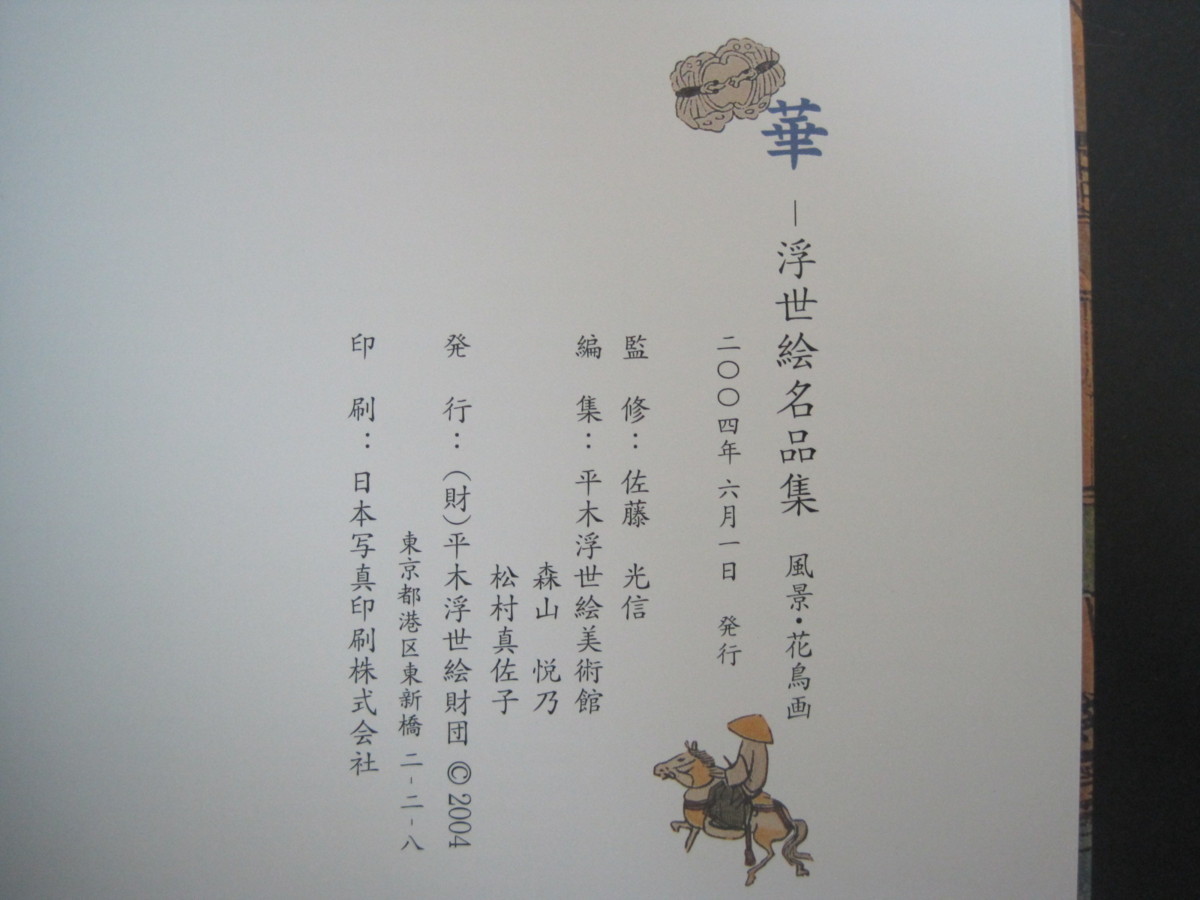 華
―浮世絵名品集 風景・花鳥画
二〇〇四年 六月一日 発行
監 修：佐藤 光信
編 集：平木浮世絵美術館
森山 悦乃
松村真佐子
発 行：（財）平木浮世絵財団 © 2004
東京都港区東新橋 二-二-八
印 刷：日本写真印刷株式会社